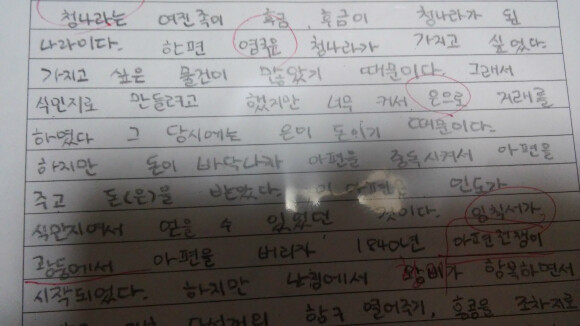 청나라는 여진족이 후금, 후금이 청나라가 된
나라이다. 한편 영국은 청나라가 가지고 싶었다.
가지고 싶은 물건이 많았기 때문이다. 그래서
식민지로 만들려고 했지만 너무 커서 은으로 거래를
하였다 그 당시에는 은이 돈이기 때문이다.
하지만 돈이 바닥나자 아편을 중독시켜서 아편을
주고 돈(은)을 받았다. 이 아편은 인도가
식민지여서 얻을 수 있었던 것이다. 임칙서가
광동에서 아편을 버리자 1840년, 아편전쟁이
시작되었다. 하지만 난징에서 항복하면서
항구 열어주기, 홍콩은